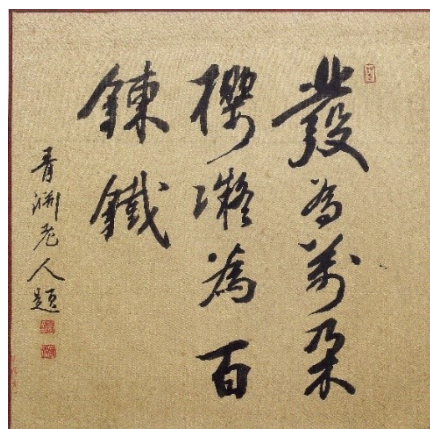 發為萬朶
櫻凝為百
鍊鐵
青淵老人題